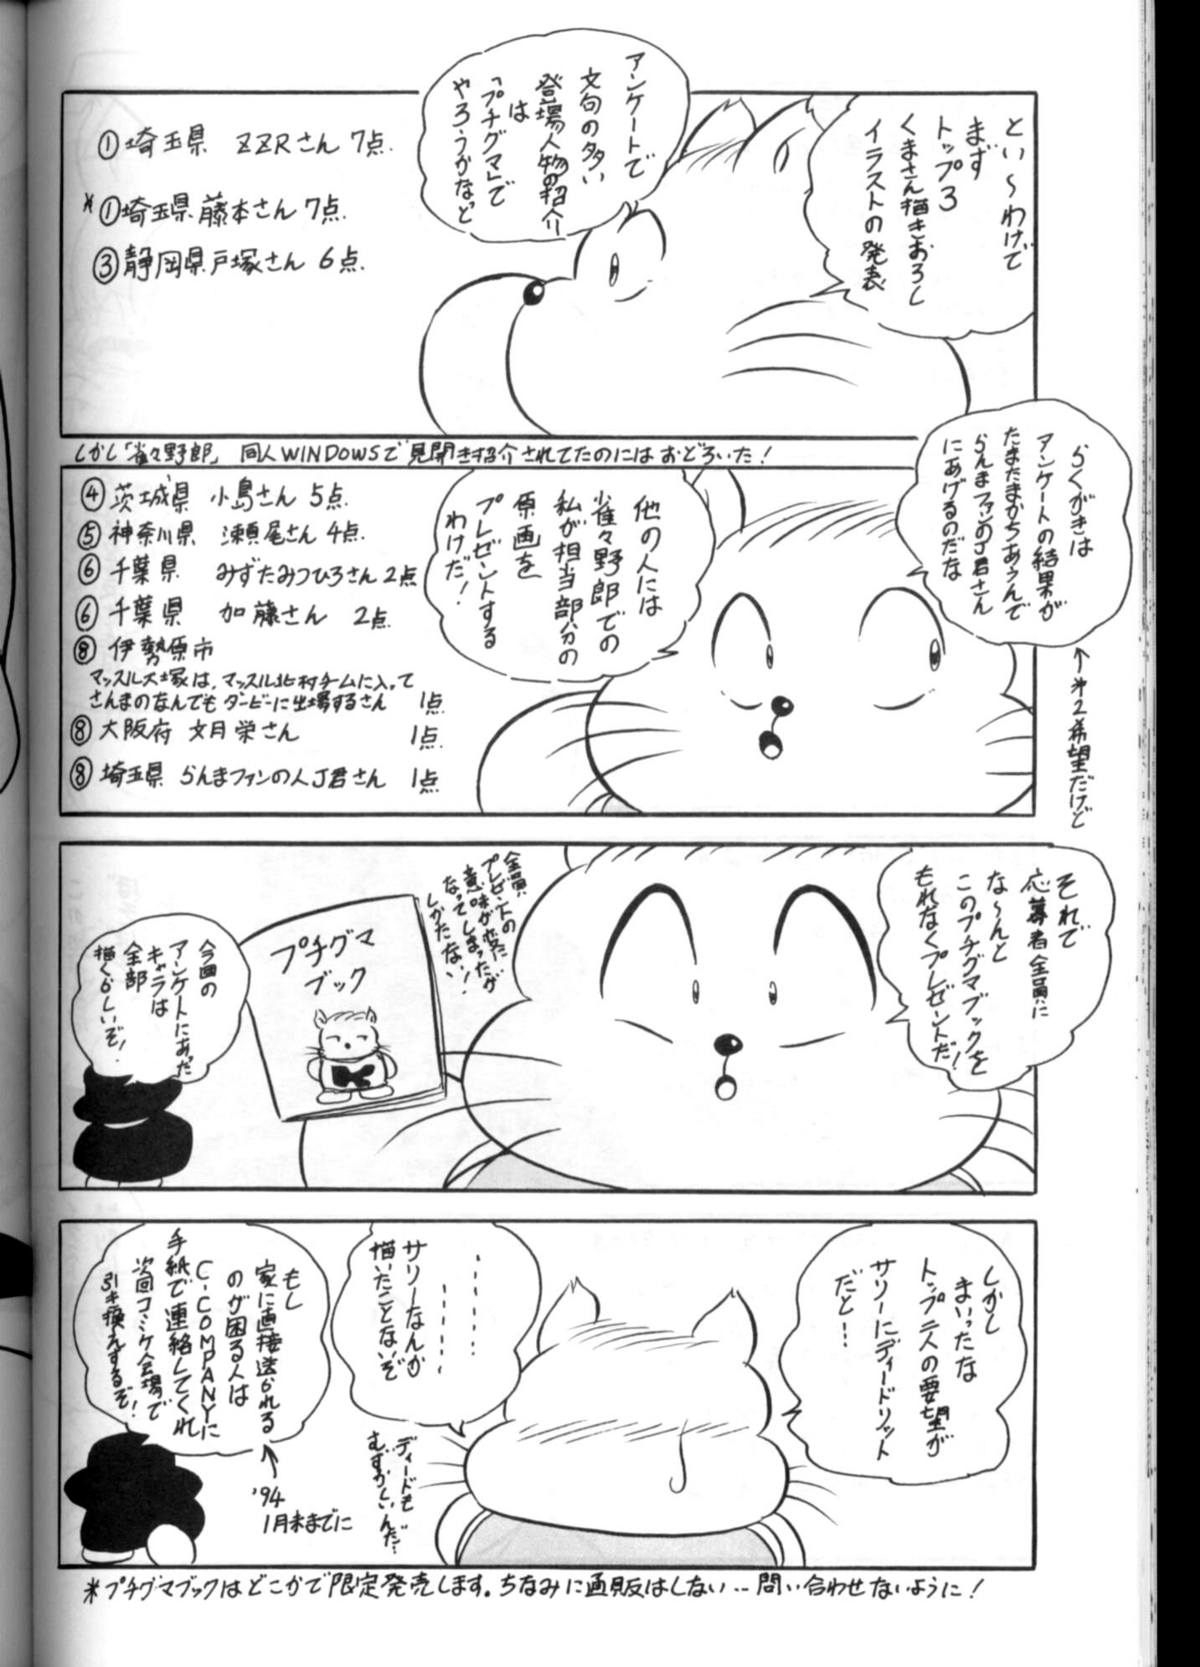 とい～わけで
まず
トップ3
くまさん描きおろし
イラストの発表
アンケートで
文句の多い
登場人物の紹介
は
「プチグマ」で
やろうかなど
①埼玉県 ZZRさん 7点.
*①埼玉県藤本さん 7点.
③静岡県戸塚さん 6点.
しかし「雀々野郎」 同人WINDOWSで見開き紹介されてたのにはおどろいた!
らくがきは
アンケートの結果が
たまたまかちあうんで
らんまファンのJ君さん
にあげるのだな
↑*2希望だけど
他の人には
雀々野郎での
私が担当部分の
原画を
プレゼントする
わけだ!
④茨城県 小島さん 5点.
⑤神奈川県 瀬尾さん 4点.
⑥千葉県 みずたみつひろさん 2点
⑥千葉県 加藤さん 2点
⑧伊勢原市
マッスル大塚は、マッスル北村チームに入って
さんまのなんでもダービーに出場するさん 1点
⑧大阪府 文月栄さん 1点
⑧埼玉県 らんまファンの人J君さん 1点
それで
応募者全員に
な～んと
このプチグマブックを
もれなくプレゼントだ!
全員
プレゼントの
意味が変に
なってしまったが
しかたない!
プチグマ
ブック
今回の
アンケートにあった
キャラは
全部
描くらしいぞ!
しかし
まいったな
トップ二人の要望が
サリーにディードリット
だと…
………
……
サリーなんか
描いたことないぞ
ディードも
むずかしいんだ…
もし
家に直接送られる
のが困る人は
C-COMPANYに
手紙で連絡してくれ
次回コミケ会場で
引き換えするぞ!
'94
1月末までに
*プチグマブックはどこかで限定発売します。ちなみに通販はしない…問い合わせないように!